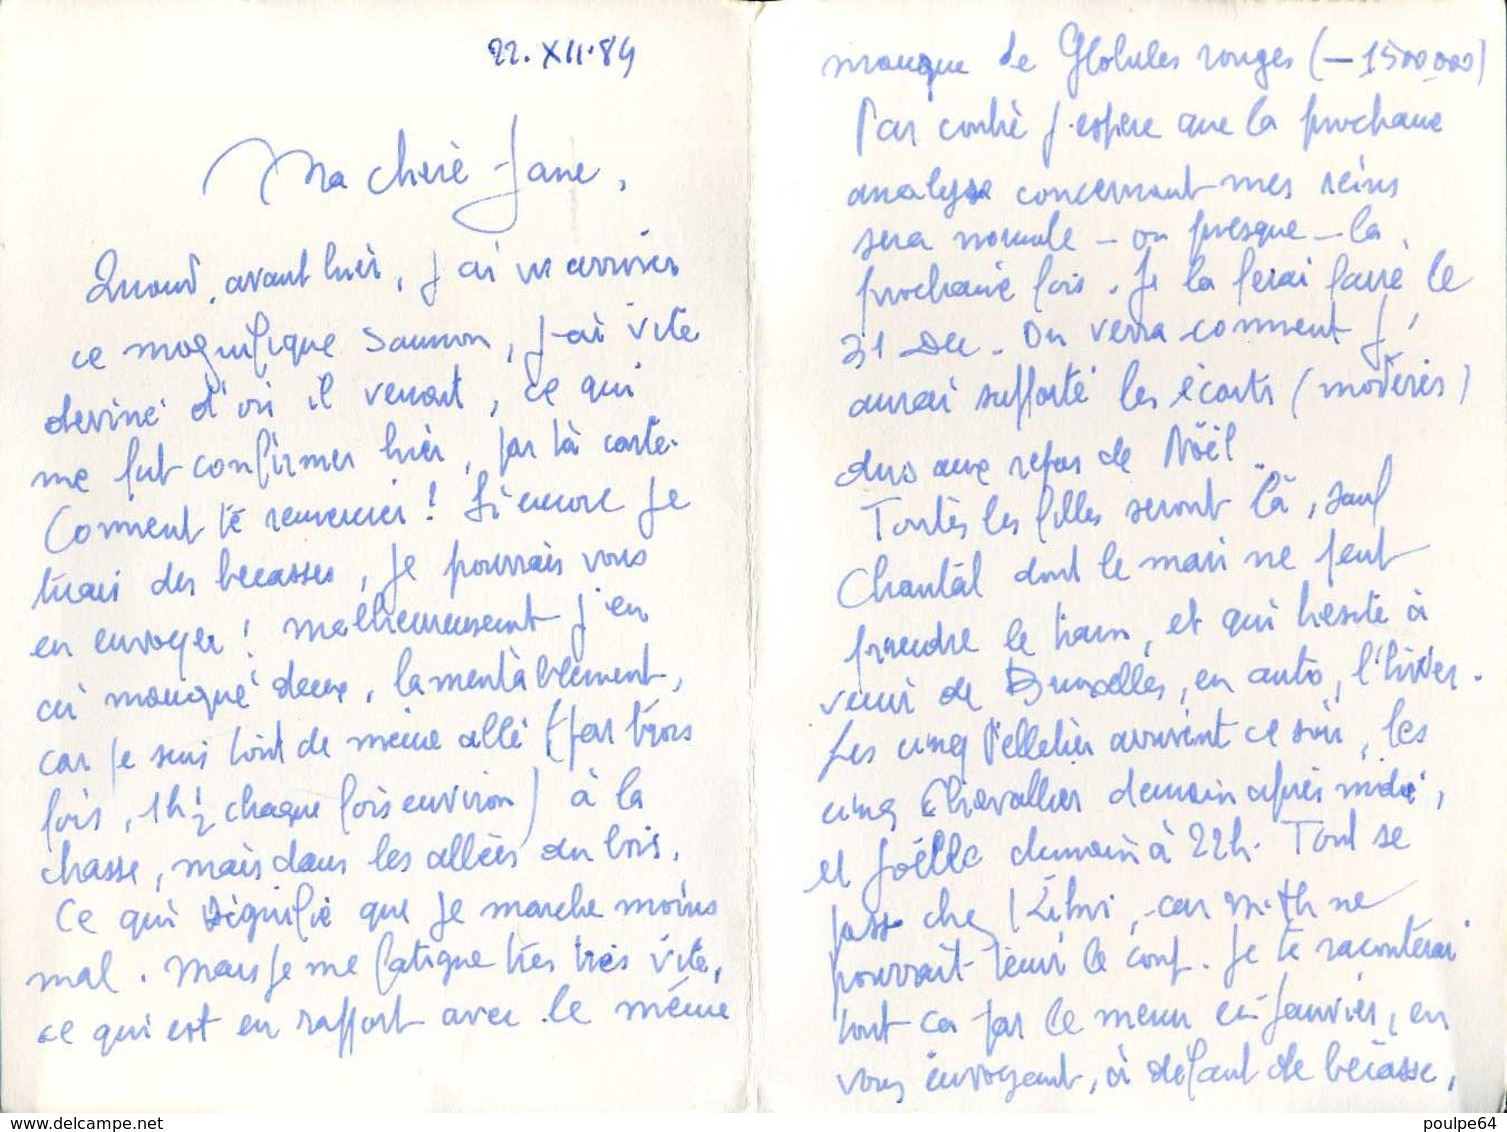 22.XII.84
Ma chère Jane,
Quand, avant hier, j'ai vu arriver
ce magnifique saumon, j'ai vite
deviné d'où il venait, ce qui
me fut confirmer hier, par ta carte.
Comment te remercier ! Si encore je
tuais des becasses, je pourrais vous
en envoyer ! malheureusement j'en
ai manqué deux, lamentablement,
car je suis tout de même allé (par trois
fois, 1h ½ chaque fois environ) à la
chasse, mais dans les allées du bois.
Ce qui signifie que je marche moins
mal. Mais je me fatigue très très vite,
ce qui est en rapport avec le même
manque de Globules rouges (– 1500000)
Par contre j'espère que la prochaine
analyse concernant mes reins
sera normale – ou presque – la
prochaine fois. Je la ferai faire le
31 Dec. On verra comment j'
aurai supporté les écarts (modérés)
dus aux repas de Noël.
Toutes les filles seront là, sauf
Chantal dont le mari ne peut
prendre le train, et qui hésite à
venir de Bruxelles, en auto, l'hiver.
Les cinq Pelletier arrivent ce soir, les
cinq Chevallier demain après midi,
et Joëlle demain à 22h. Tout se
passe chez, car ne
pourrait tenir le coup. Je te raconterai
tout ça par le menu en Janvier, en
vous envoyant, à défaut de bécasse,
www.delcampe.net
poulpe64